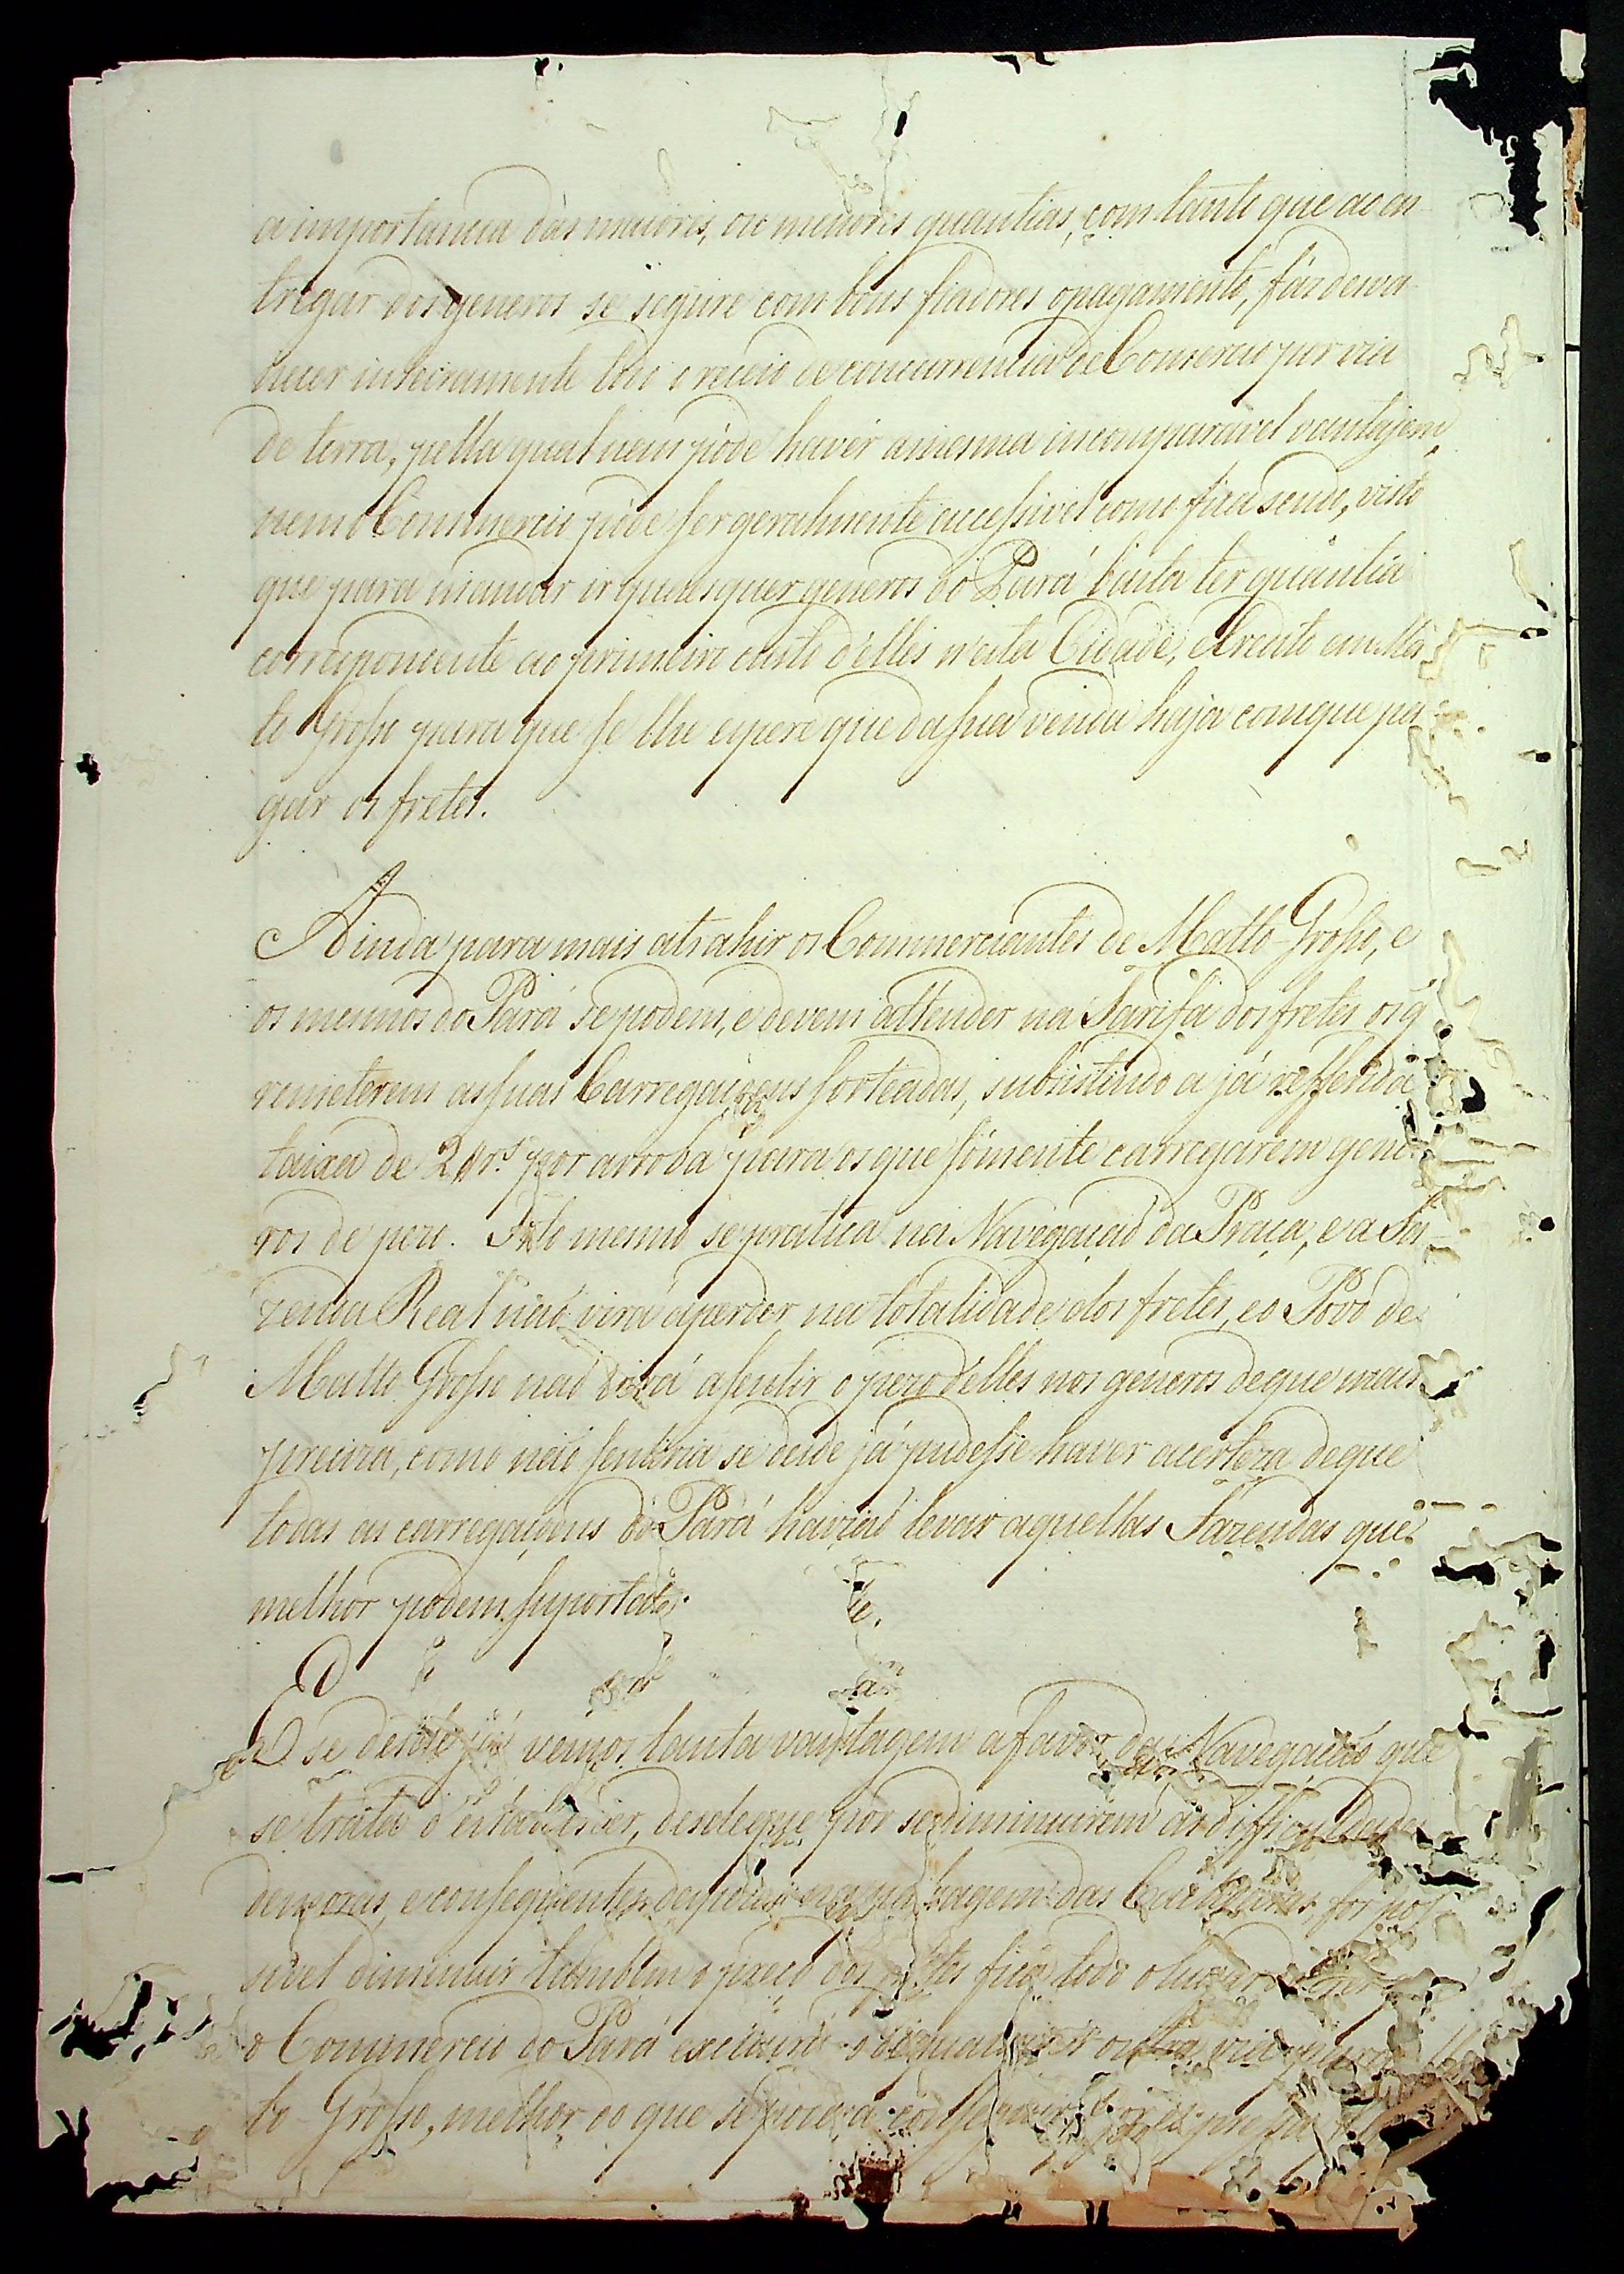 a importancia das maiores, ou menores quantias, com tanto que ao en-
tregar dos generos se segure com bons fiadores o pagamento, fás desva-
necer inteiramente todo o receio de concurrencia de Comercio por via
de terra, pella qual nem póde haver a mesma incomparavel vantajem,
nem o Commercio póde ser geralmente accessivel como fica sendo, visto
que para mandar ir quaesquer generos do Pará basta ter quantia
correspondente ao primeiro custo d'elles n'esta Cidade, e credito em Ma-
to Grosso para que se lhe espere que da sua venda haja com que pa-
gar os fretes.
Ainda para mais atrahir os Commerciantes de Matto-Grosso, e
os mesmos do Pará se podem, e devem attender na Tarifa dos fretes os q̃
remeterem as suas Carregaçoens sorteadas, subsistindo a já refferida
taixa de rs. por arroba para os que sómente carregarem gene-
ros de pezo. Isto mesmo se pratica na Navegaçaõ da Praça, e a Fa-
zenda Real naõ virá a perder na totalidade dos fretes, e o Povo de
Matto Grosso naõ virá a sentir o pezo d'elles nos generos de que mais
preciza, como naõ sentiria se desde já pudesse haver a certeza de que
todas as carregaçoens do Pará haviaõ levar aquellas Fazendas que
melhor podem suportalos.
E se desde já vemos tanta vantagem a favor da Navegaçaõ que
se trata d'estabelecer, desde que por se diminuirem as difficuldades
demoras, e consequentes despezas na passagem das Cachoeiras, for pos-
sivel diminuir tambem o preço dos fretes fica todo o lugar
o Commercio do Pará excluindo o de qualquer outra via para
to-Grosso, melhor do que se poderá conseguir por expressa